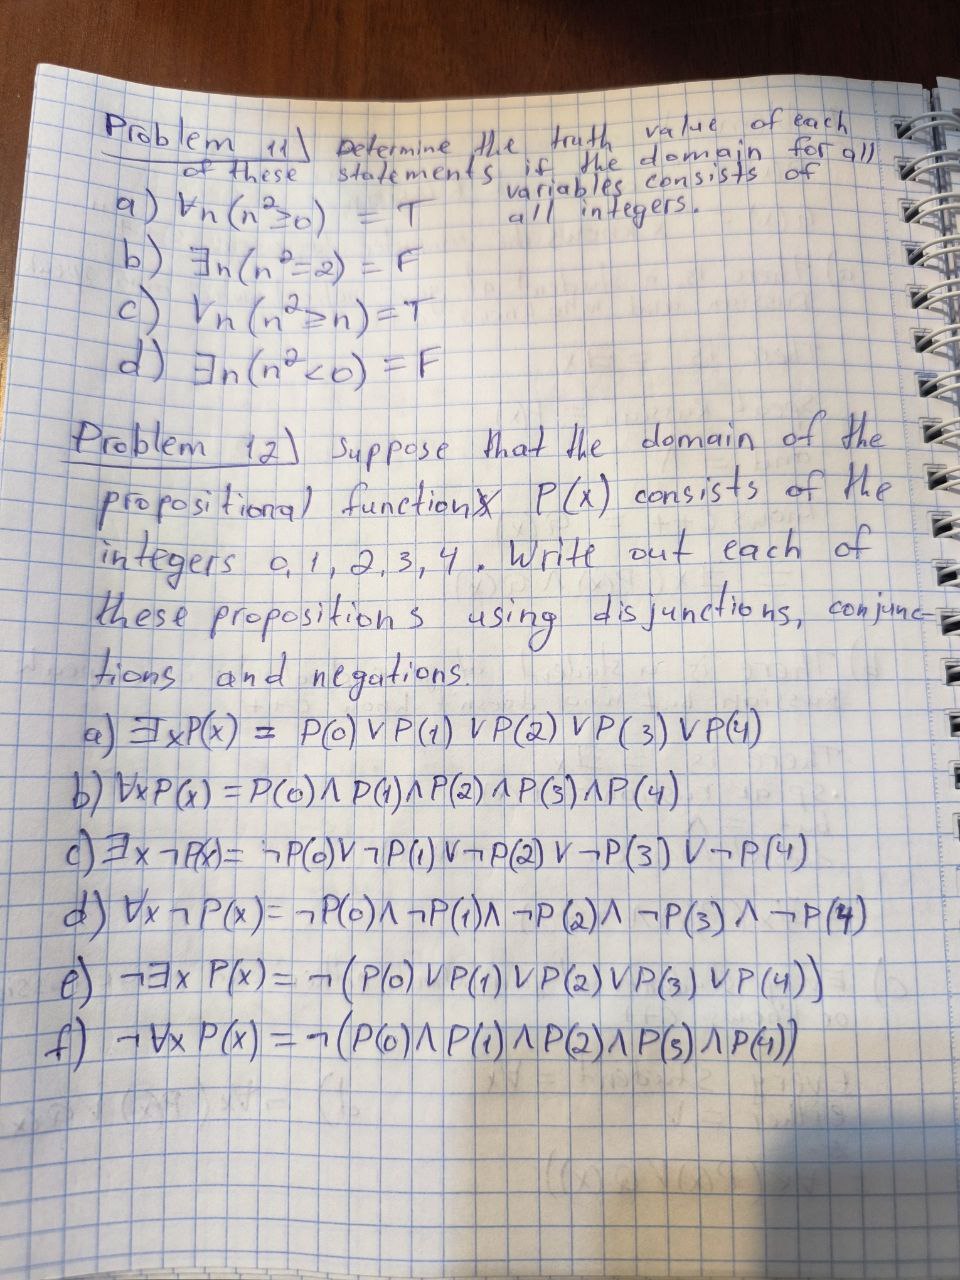 Problem 11) Determine the truth value of each
of these statements if the domain for all
variables consists of
all integers.
a) ∀n(n²≥0) = T
b) ∃n(n²=2) = F
c) ∀n(n²≥n) = T
d) ∃n(n²<0) = F
Problem 12) Suppose that the domain of the
propositional function P(x) consists of the
integers 0, 1, 2, 3, 4. Write out each of
these propositions using disjunctions, conjunc-
tions and negations.
a) ∃xP(x) = P(0) ∨ P(1) ∨ P(2) ∨ P(3) ∨ P(4)
b) ∀xP(x) = P(0) ∧ P(1) ∧ P(2) ∧ P(3) ∧ P(4)
c) ∃x¬P(x) = ¬P(0) ∨ ¬P(1) ∨ ¬P(2) ∨ ¬P(3) ∨ ¬P(4)
d) ∀x¬P(x) = ¬P(0) ∧ ¬P(1) ∧ ¬P(2) ∧ ¬P(3) ∧ ¬P(4)
e) ¬∃x P(x) = ¬(P(0) ∨ P(1) ∨ P(2) ∨ P(3) ∨ P(4))
f) ¬∀x P(x) = ¬(P(0) ∧ P(1) ∧ P(2) ∧ P(3) ∧ P(4))